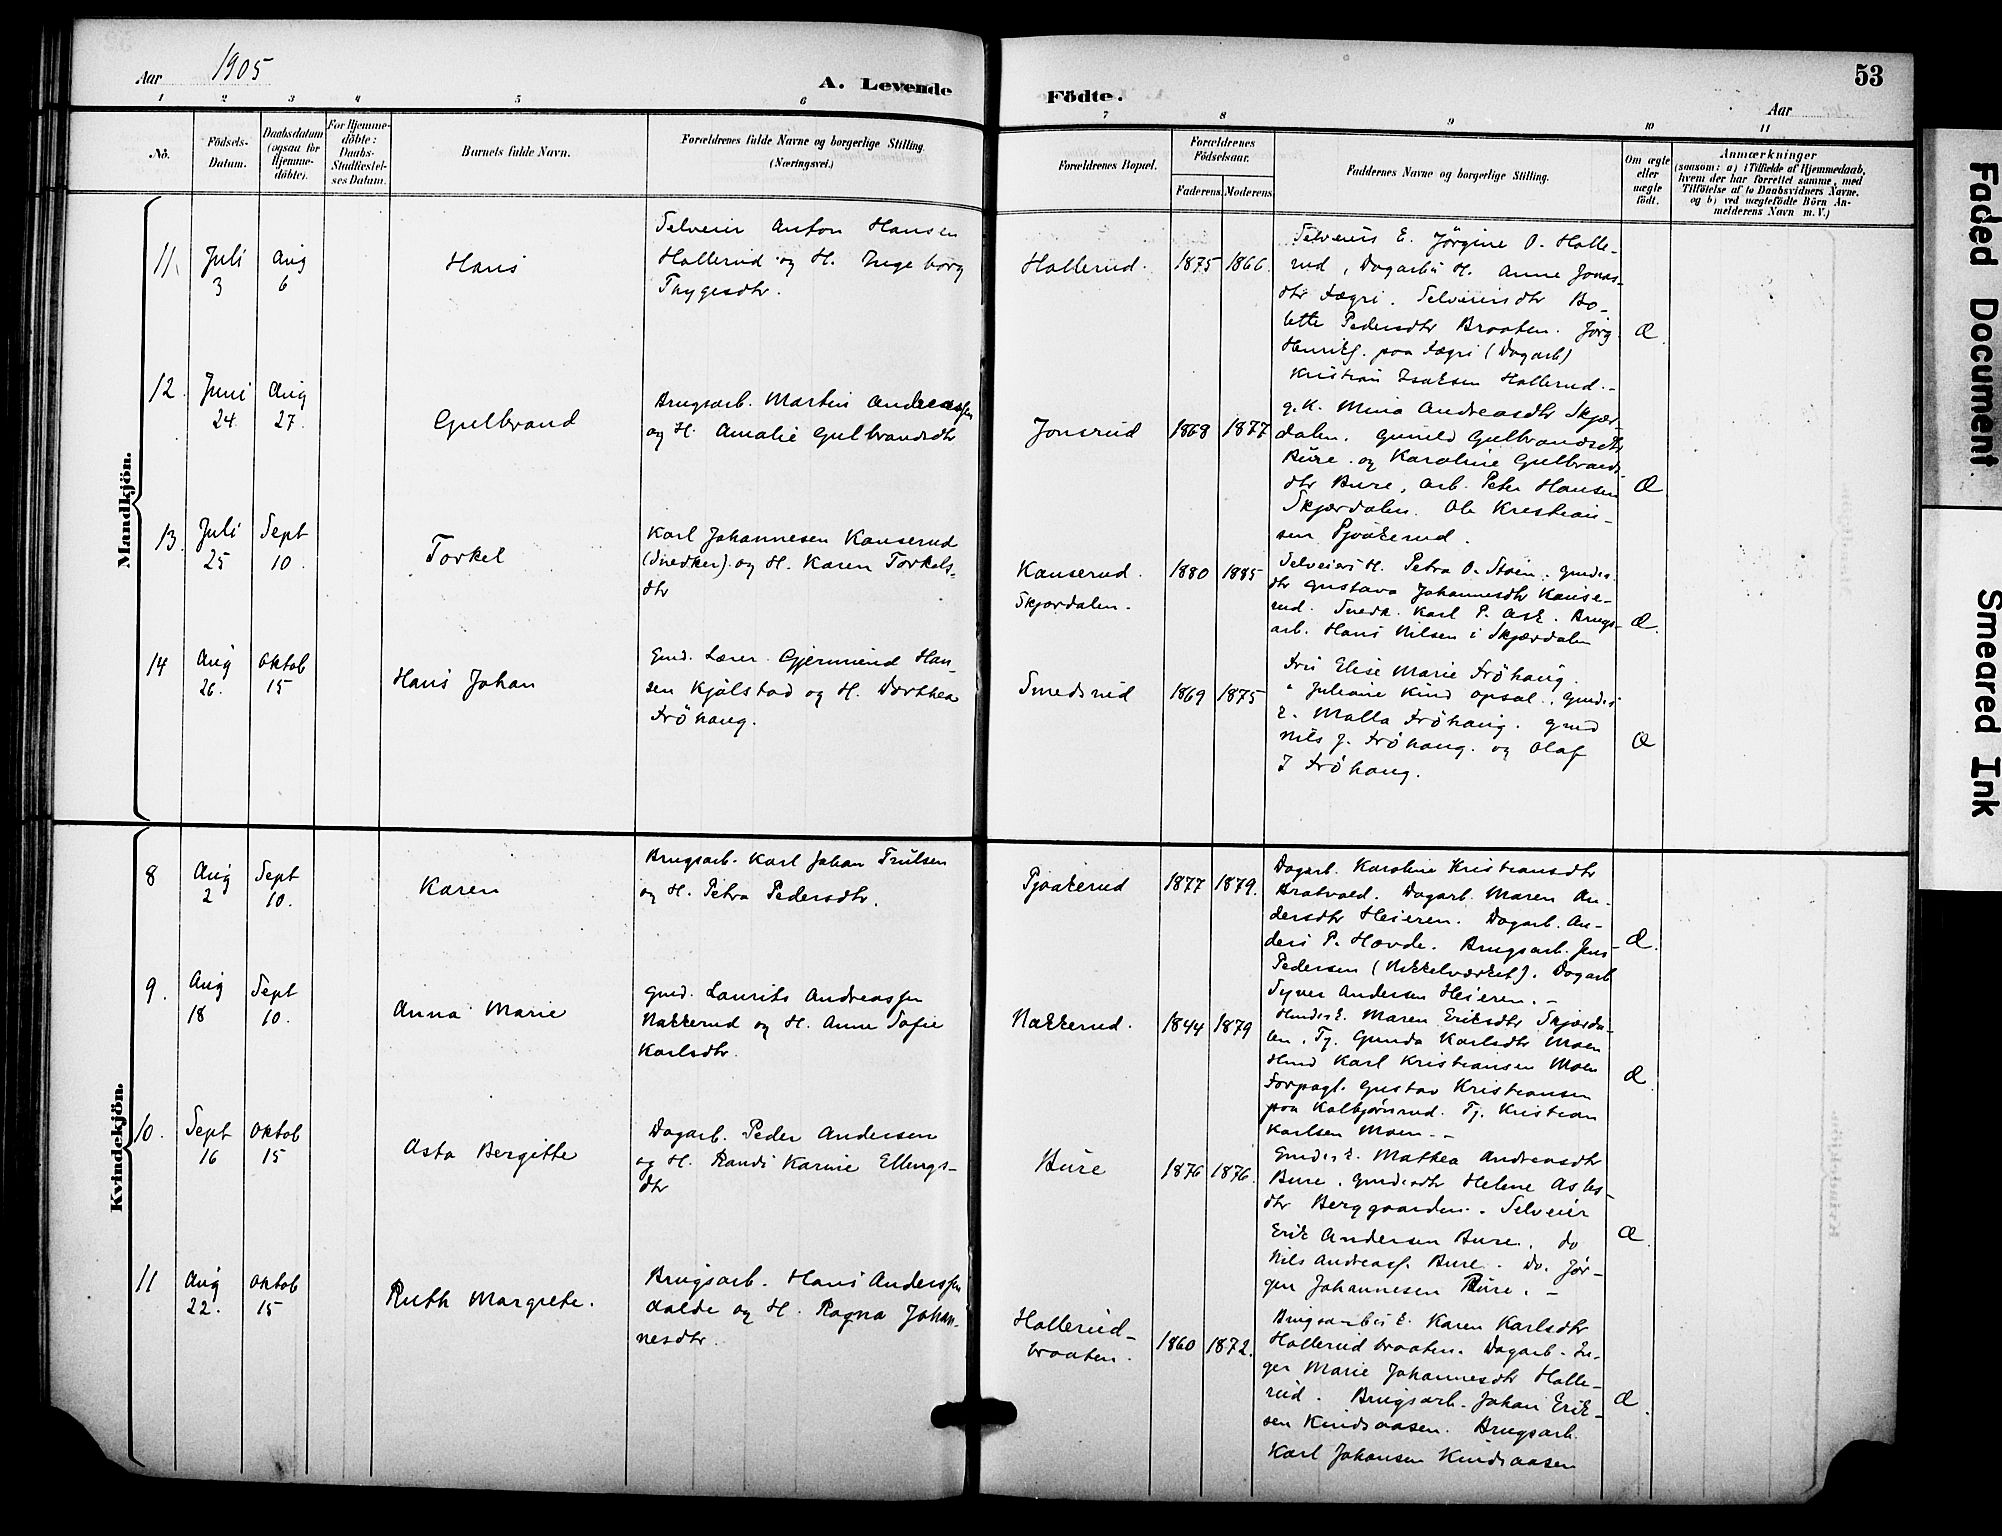 Aar 1905
A. Levende
Födte.
53
Aar
1 2 3 4 5 6
7 8 9 10 11
No.
Födsels-
Datum.
Daabsdatum
(ogsaa for
Hjemme-
döbte).
For Hjemme-
döbte:
Daabs-
Stadfæstel-
ses Datum.
Barnets fulde Navn.
Forældrenes fulde Navne og borgerlige Stilling
(Næringsvei.)
Forældrenes Bopæl.
Forældrenes
Födselsaar.
Faderens
Moderens
Faddernes Navne og borgerlige Stilling.
Om ægte
eller
uægte
födt.
Anmærkninger
(saasom: a) i Tilfælde af Hjemmedaab,
hvem der har forrettet samme, med
Tilföielse af to Daabsvidners Navne.
og b) ved uægtefödte Börn An-
melderens Navn m. V.)
Mandkjön.
11.
Juli
3
Aug
6
Hans
Selveier Anton Hansen
Hallerud og H. Ingeborg
Thygesdtr.
Hallerud.
1875
1866.
Selveiers E. Jörgine O. Halle-
rud, Dagarbs H. Anne Jonas-
dtr Fægri. Selveiersdtr Bo-
lette Pedersdtr Braaten. Jörg
Henriks. paa Fægri (Dagarb)
Kristian Isaksen Hallerud.-
Æ.
12.
Juni
24.
Aug
27.
Gulbrand
Brugsarb. Martin Andreassen
og H. Amalie Gulbrandsdtr
Jonsrud
1868
1877
g. K. Mina Andreasdtr Skjær-
dalen. Gunild Gulbrandsdtr
Bure. og Karoline Gulbrands-
dtr Bure, arb. Peter Hansen
Skjærdalen. Ole Kristian-
sen Pjaakerud.
Æ
13.
Juli
25
Sept
10.
Torkel
Karl Johannesen Kanserud
(Snedker) og H. Karen Torkels-
dtr
Kanserud.
Skjærdalen.
1880
1885
Selveiers H. Petra O. Stein. Gmdes.
dtr Gustava Johannesdtr Kanse-
rud. Snedk. Karl P. Ask. Brugs-
arb. Hans Nilsen i Skjærdalen
Æ.
14
Aug
26.
Oktob
15
Hans Johan
Gmd. Lærer. Gjermund Han-
sen Kjölstad og H. Dorthea
Fröhaug.
Smedsrud
1869
1875
Fru Elise Marie Fröhaug.
" Juliane Kind Opsal. Gmdes
E. Malla Fröhaug. Gmd
Nils J. Fröhaug. og Olaf
I Fröhaug.
Æ
Kvindekjön.
8
Aug
2
Sept
10.
Karen
Brugsarb. Karl Johan Trulsen
og H. Petra Pedersdtr.
Pjaakerud
1877
1879.
Dagarb. Karoline Kristiansdtr
Bratvald. Dagarb. Maren An-
dersdtr Heieren. Dagarb. An-
ders P. Hovde. Brugsarb. Jens
Pedersen (Nikkelværket). Dagarb
Syver Andersen Heieren.-
Æ.
9.
Aug
18
Sept
10.
Anna Marie
Gmd. Laurits Andreassen
Nakkerud og H. Anne Sofie
Karlsdtr.
Nakkerud.
1844
1879
Hmdes E. Maren Eriksdtr Skjærda-
len. Tj. Gunda Karlsdtr Moen
Hmd Karl Kristiansen Moen
Forpagt. Gustav Kristiansen
paa Kalbjörnrud. Tj. Kristian
Karlsen Moen.-
Æ.
10.
Sept
16
Oktob
15
Asta Bergitte
Dagarb. Peder Andersen
og H. Randi Karine Ellings-
dtr
Bure
1876
1876.
Gmdes E. Mathea Andreasdtr
Bure. Gmdesdtr Helene Asles-
dtr Berggaarden. Selveier
Erik Andersen Bure. do
Nils Andreass. Bure. Do. Jör-
gen Johannesen Bure.-
Æ.
11
Aug
22.
Oktob
15
Ruth Margrete.
Brugsarb. Hans Anderssen
dalde og H. Ragna Johan-
nesdtr.
Hallerud-
braaten.
1860
1872.
Brugsarbes E. Karen Karlsdtr
Hallerud braaten. Dagarb. In-
ger Marie Johannesdtr Halle-
rud. Brugsarb. Johan Erik-
sen Kindsaasen. Brugsarb.
Karl Johansen Kindsaasen
Æ.
Faded Document
Smeared Ink